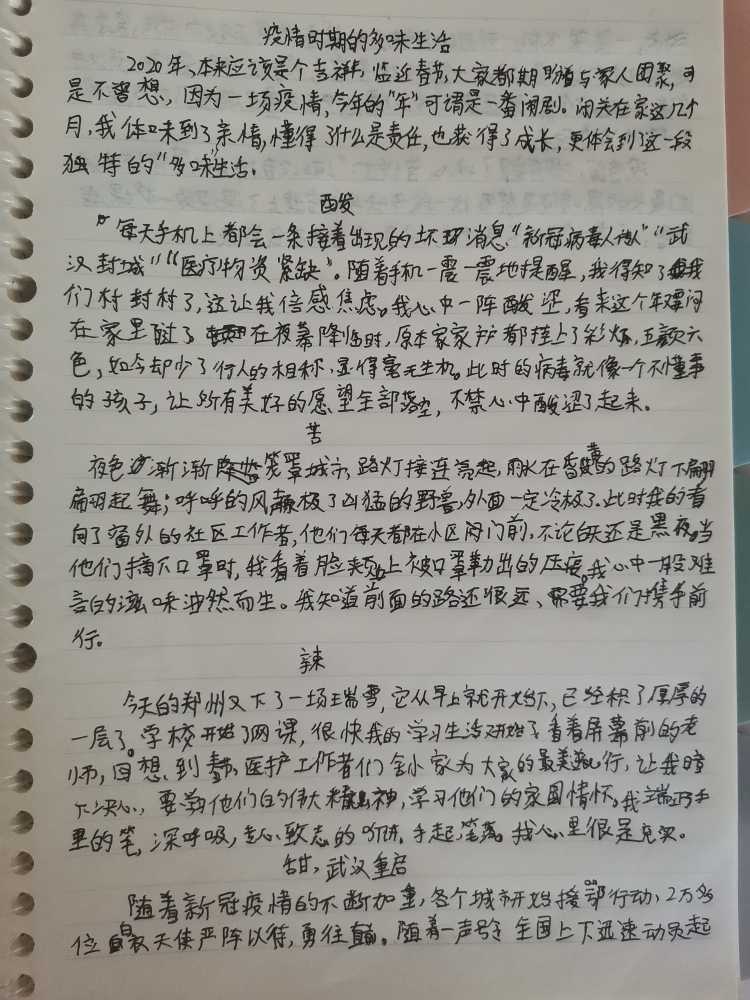 疫情时期的多味生活
2020年、本来应该是个吉祥，临近春节，大家都期盼着与家人团聚，可
是不曾想，因为一场疫情，今年的"年"可谓是一番闹剧。闭关在家这几个
月，我体味到了亲情，懂得了什么是责任，也获得了成长，更体会到了这一段
独特的"多味"生活.
酸
每天手机上都会一条接着出现的坏消息"新冠病毒人传人""武
汉封城""医疗物资紧缺"。随着手机一震一震地提醒，我得知了我
们村封村了，这让我倍感焦虑。我心中一阵酸涩，看来这个年要闷
在家里过了 在夜幕降临时，原本家家户户都挂上了彩灯，五颜六
色，如今却少了行人的相称，显得毫无生机。此时的病毒就像一个不懂事
的孩子，让所有美好的愿望全部落空，不禁心中酸涩了起来。
苦
夜色渐渐笼罩城市，路灯接连亮起，雨水在昏黄的路灯下翩
翩起舞；呼呼的风像极了凶猛的野兽，外面一定冷极了。此时我的看
向了窗外的社区工作者，他们每天都在小区门前，不论白天还是黑夜。当
他们摘下口罩时，我看着脸颊上被口罩勒出的压痕。我心中一股难
言的滋味油然而生。我知道前面的路还很远、需要我们携手前
行。
辣
今天的郑州又下了一场瑞雪，它从早上就开始下，已经积了厚厚的
一层了。学校开始了网课，很快我的学习生活开始了 看着屏幕前的老
师，回想到春节医护工作者们舍小家为大家的最美逆行，让我暗
下决心，要学他们的伟大精神，学习他们的家国情怀。我端正手
里的笔，深呼吸，专心致志的听讲，手起笔落。我心里很是充实。
甜，武汉重启
随着新冠疫情的不断加重，各个城市开始接部行动、2万多
位白衣天使严阵以待，勇往直前。随着一声号令 全国上下迅速动员起